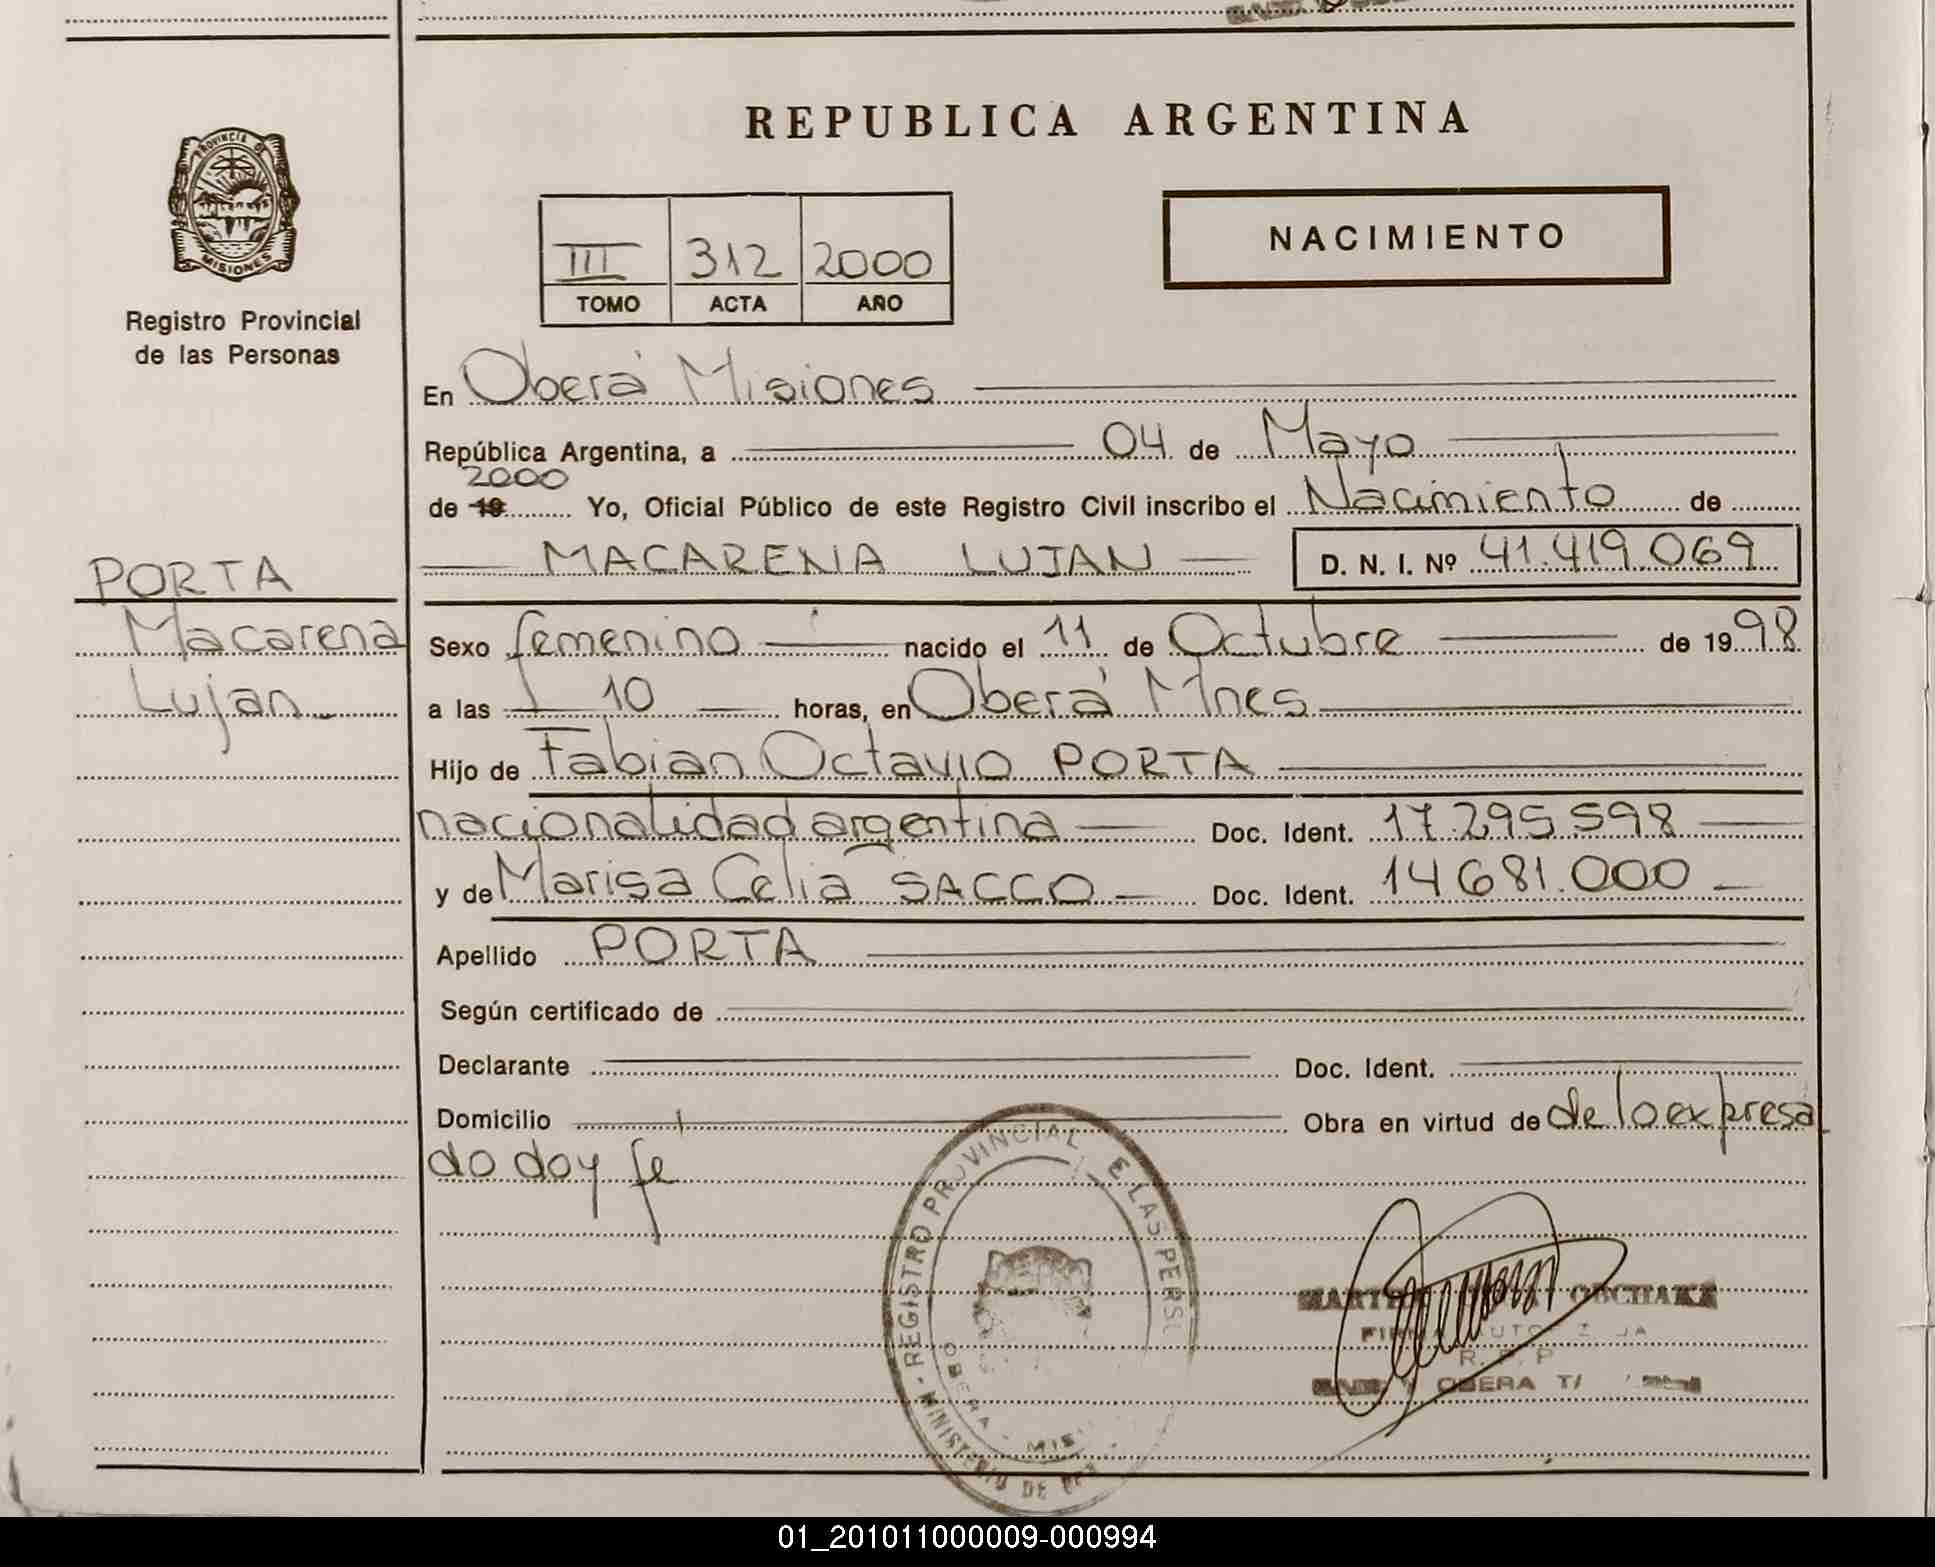 PROVINCIA D
MISIONES
Registro Provincial
de las Personas
REPUBLICA ARGENTINA
III 312 2000
TOMO ACTA AÑO
NACIMIENTO
En Oberá Misiones
República Argentina, a 04 de Mayo
2000
de 19 Yo, Oficial Público de este Registro Civil inscribo el Nacimiento de
MACARENA LUJAN D. N. I. Nº 41.419.069
PORTA
Macarena
Lujan
Sexo femenino nacido el 11 de Octubre de 1998
a las 10 horas, en Oberá Mnes
Hijo de Fabian Octavio PORTA
nacionalidad argentina Doc. Ident. 17.295.598
y de Marisa Celia SACCO Doc. Ident. 14681.000
Apellido PORTA
Según certificado de
Declarante Doc. Ident.
Domicilio Obra en virtud de de lo expresa
do doy fe
REGISTRO PROVINCIAL E LAS PERS
OBERA - MIS
MINISTERIO DE
FIRMA
R. P. P
OBERA
01_201011000009-000994